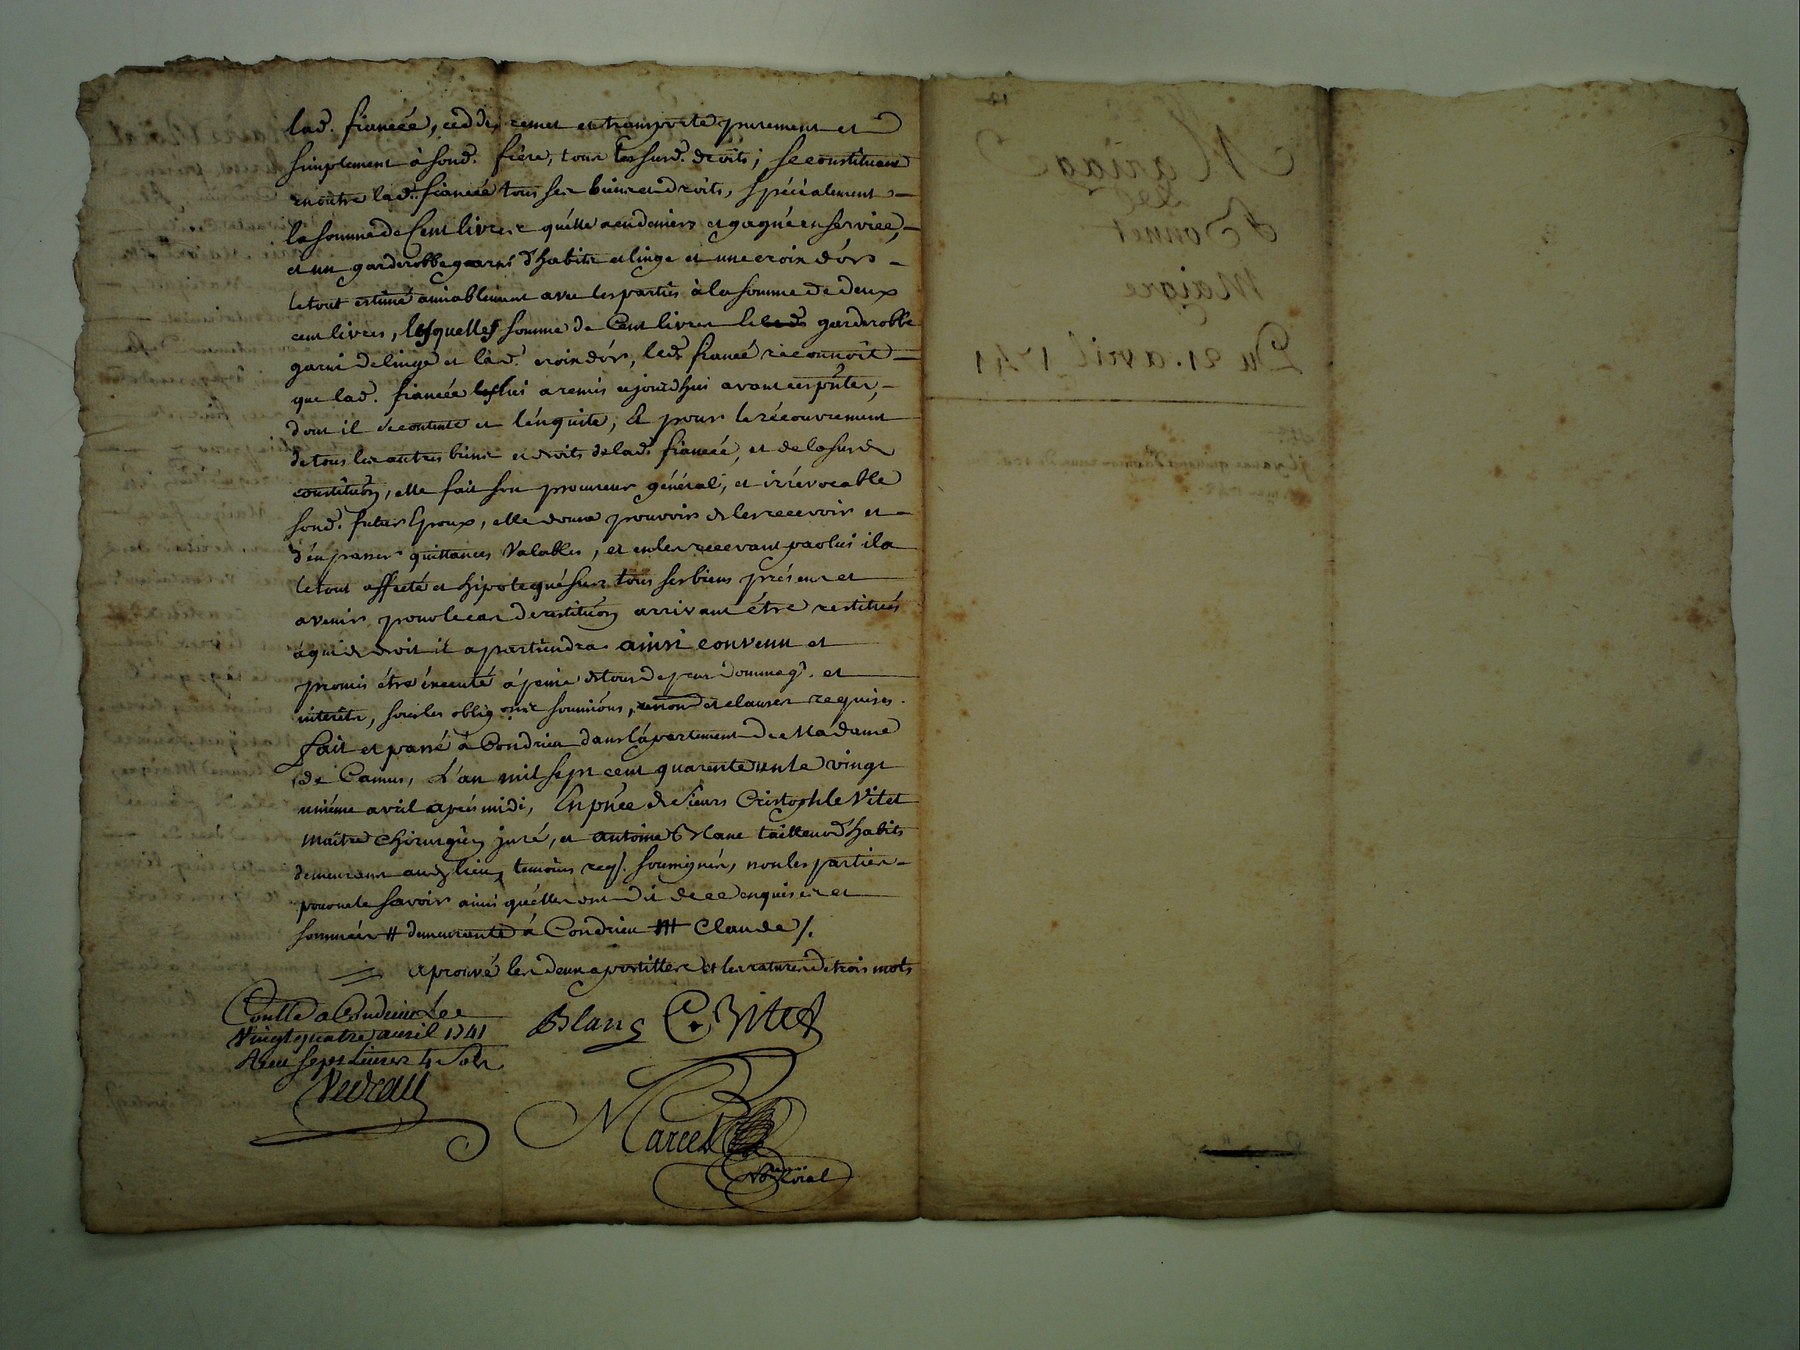 lad. fiancée, cedde, remet et transporte purement et
simplement à sond. frère, tous les susd. droits; se constituant
en outre lad. fiancée tous ses biens et droits, spécialement
la somme de Cent livres qu'elle a en deniers et gagné en service,
et un garderobbe garni d'habits et linge et une croix d'or
le tout estimé amiablement avec les parties à la somme de deux
cent livres, lesquelles somme de Cent livres garderobbe
garni de linge et lad. croix d'or, led. fiancé reconnoit
que lad. fiancée lui a remis cejourd'hui avant ces pntes,
dont il se contente et l'enquite, Et pour le récouvrement
de tous les autres biens et droits de lad. fiancée, et de la susd.
constitution, elle fait son procureur général, et irrévocable
sond. futur Epoux, elle donne pouvoir de les recevoir et
d'en passer quittances Valables, et en les recevant par lui il a
le tout affecté et hipotequé sur tous ses biens présent et
avenir pour le cas de restitution arrivant être restitués
à qui de droit il apartiendra ainsi convenu et
promis être éxecuté à peine de tous depens dommag. et
interêts, sous les oblig. soumiôns, renon. et clauses requises.
fait et passé à Condrieu dans l'apartement de Madame
de Camus, L'an mil sept cent quarente un le vingt
unième avril après midi, En pnce de Sieurs Cristophle Vitet
Maître chirurgien juré, et Antoine Blanc tailleur d'habits
demeurant aud. lieu, temoins req. soussignés, non les parties
pour ne le savoir ainsi qu'elles ont dit de ce enquises et
sommées # demeurante à Condrieu ## Claude /.
aprouvé les deux apostilles et les ratures de trois mots
Conllé a Condrieu Le
Vingt quatre avril 1741
Reçu sept Livres 4 Sols
Blanc C. Vitet
Marcel
No.re Roial
Mariage
de
Bonnet
Maigre
Du 21. avril 1741